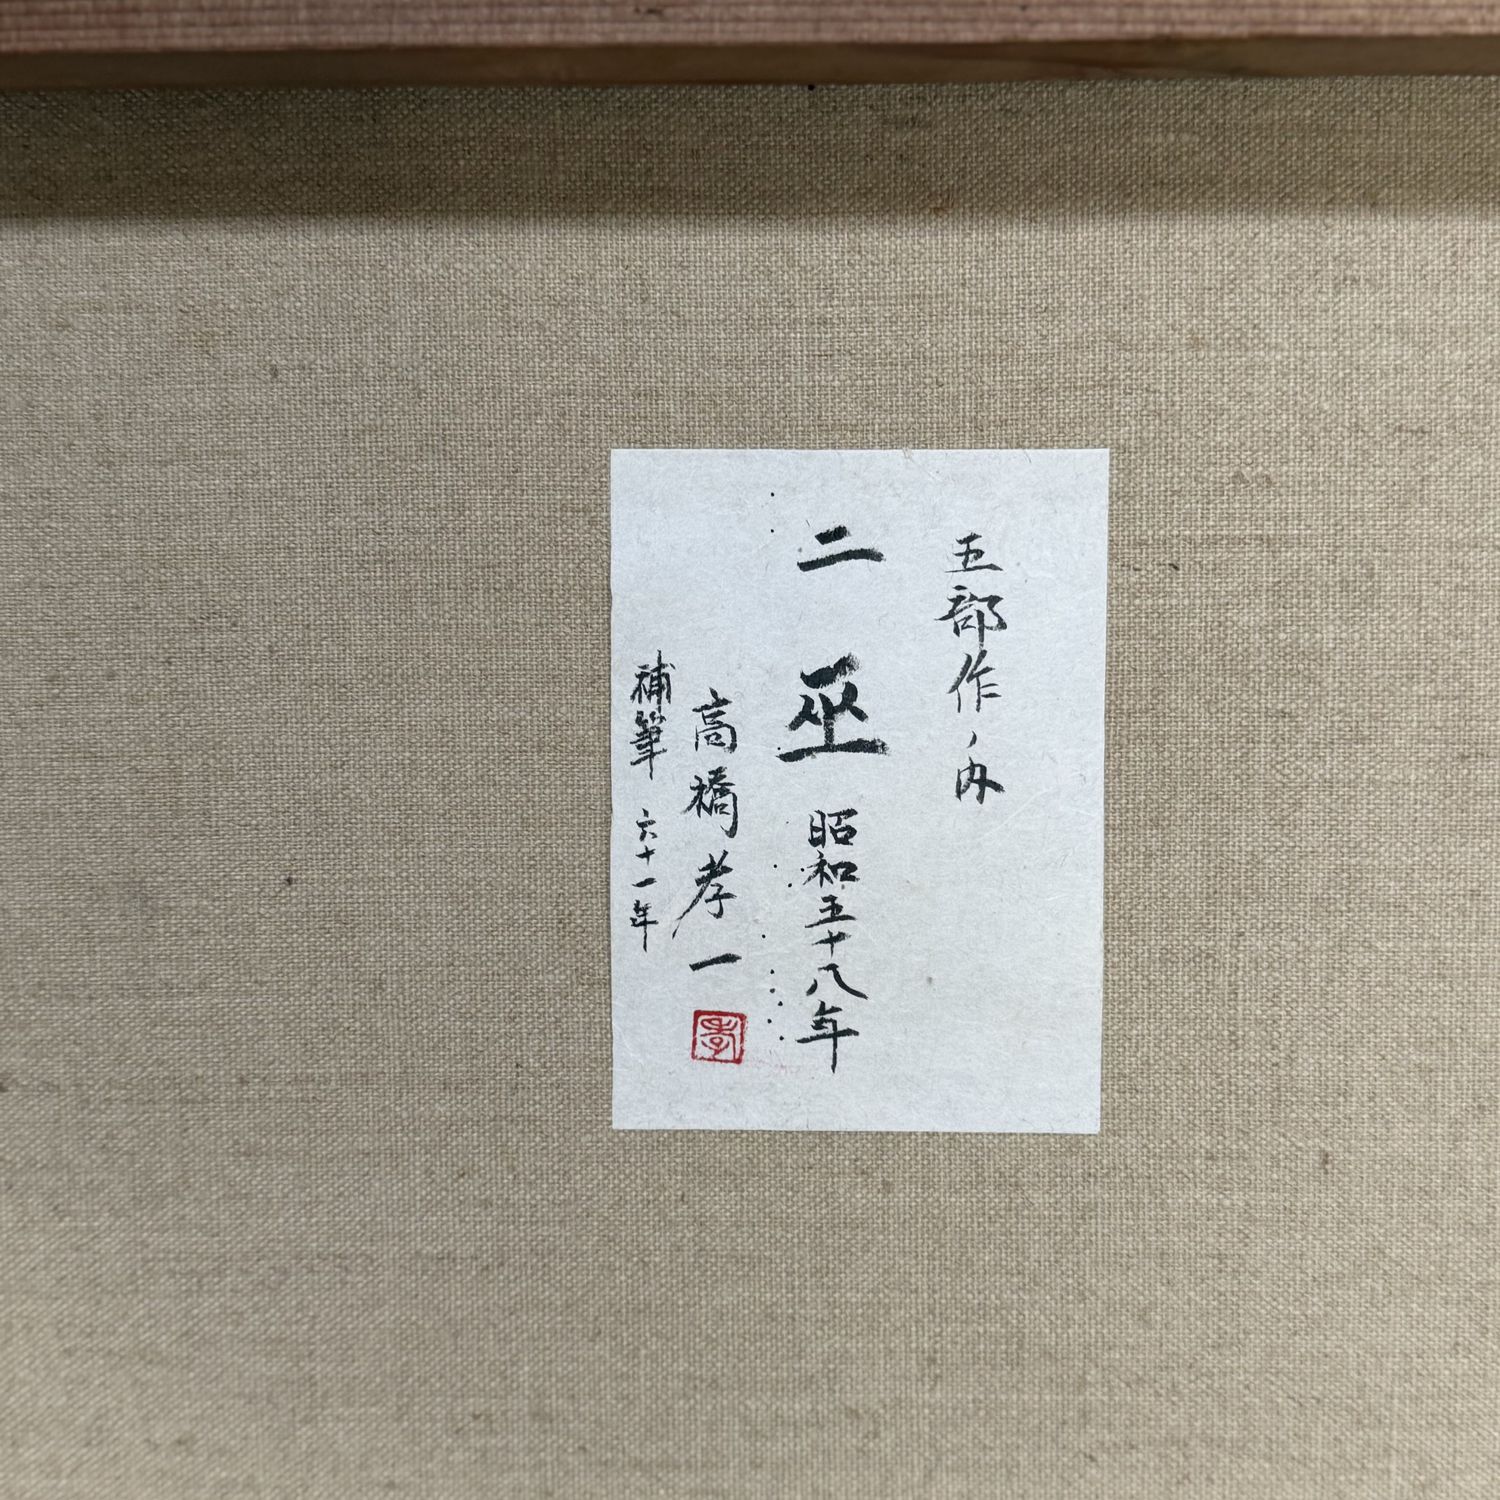 五部作ノ内
二 巫 昭和五十八年
高橋孝一
孝
補筆 六十一年